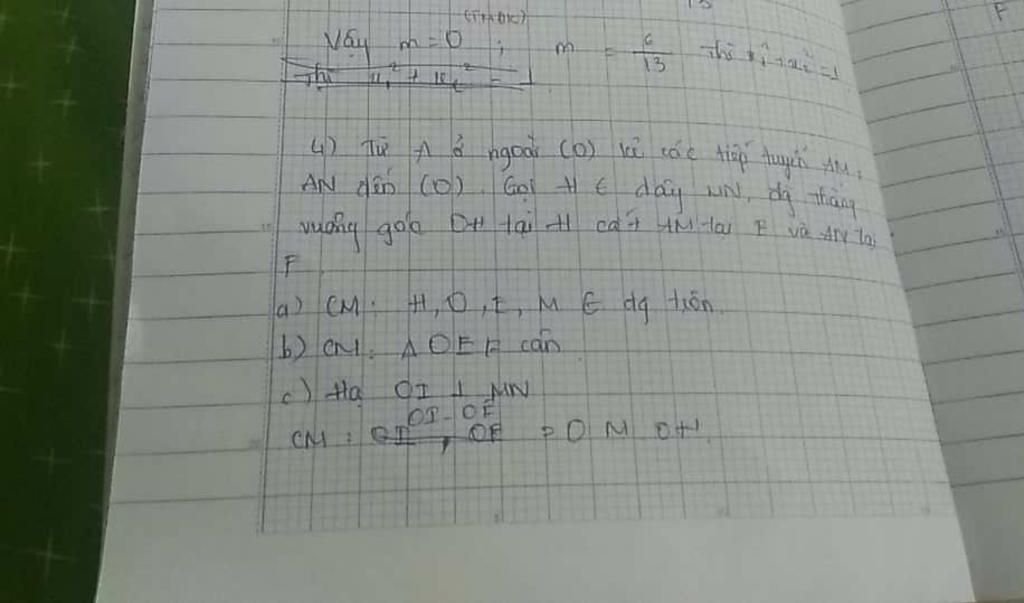 13
F
(TMĐK)
Vậy m = 0 ; m = 6/13 thì x₁² + x₂² = 1
4) Từ A ở ngoài (O) kẻ các tiếp tuyến AM,
AN đến (O). Gọi H ∈ dây MN, đg thẳng
vuông góc OH tại H cắt AM tại E và AN tại
F
a) CM: H, O, E, M ∈ đg tròn.
b) CM: Δ OEF cân
c) Hạ OI ⊥ MN
OI. OE
CM: = OM. OH